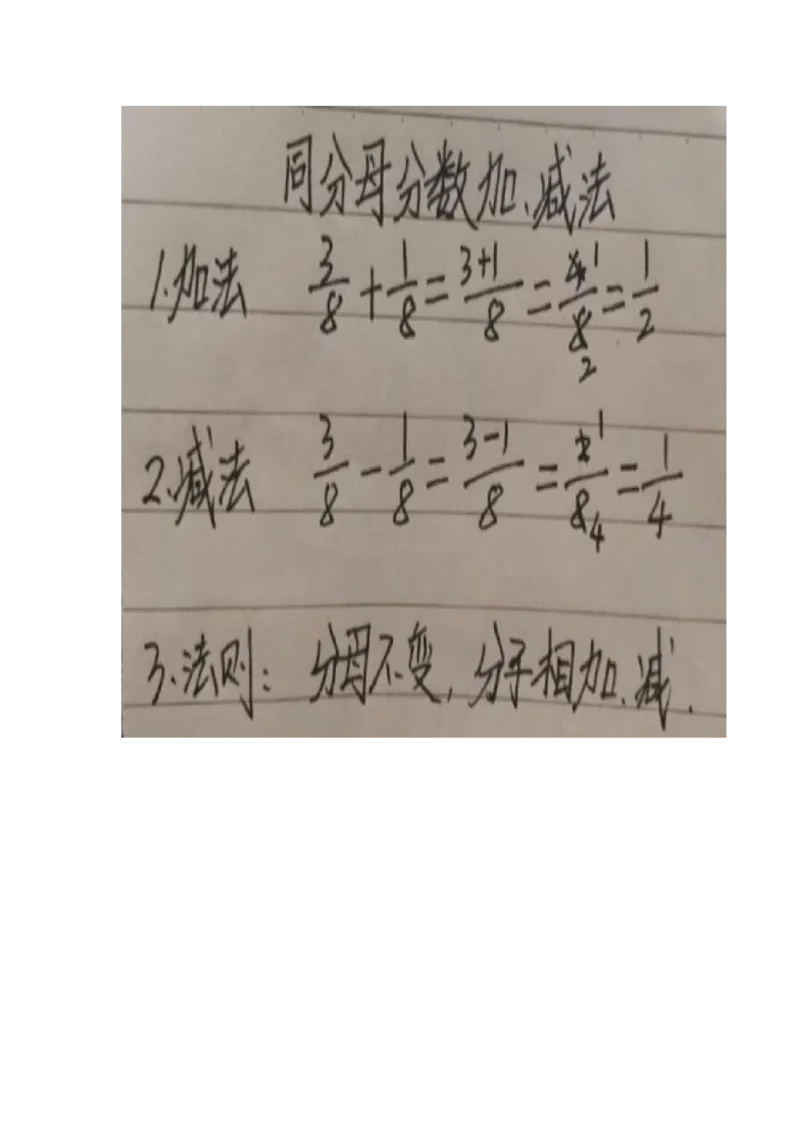 同分母分数加、减法
1.加法 3/8 + 1/8 = 3+1/8 = 4 1/8 2 = 1/2
2.减法 3/8 - 1/8 = 3-1/8 = 2 1/8 4 = 1/4
3.法则: 分母不变,分子相加、减.